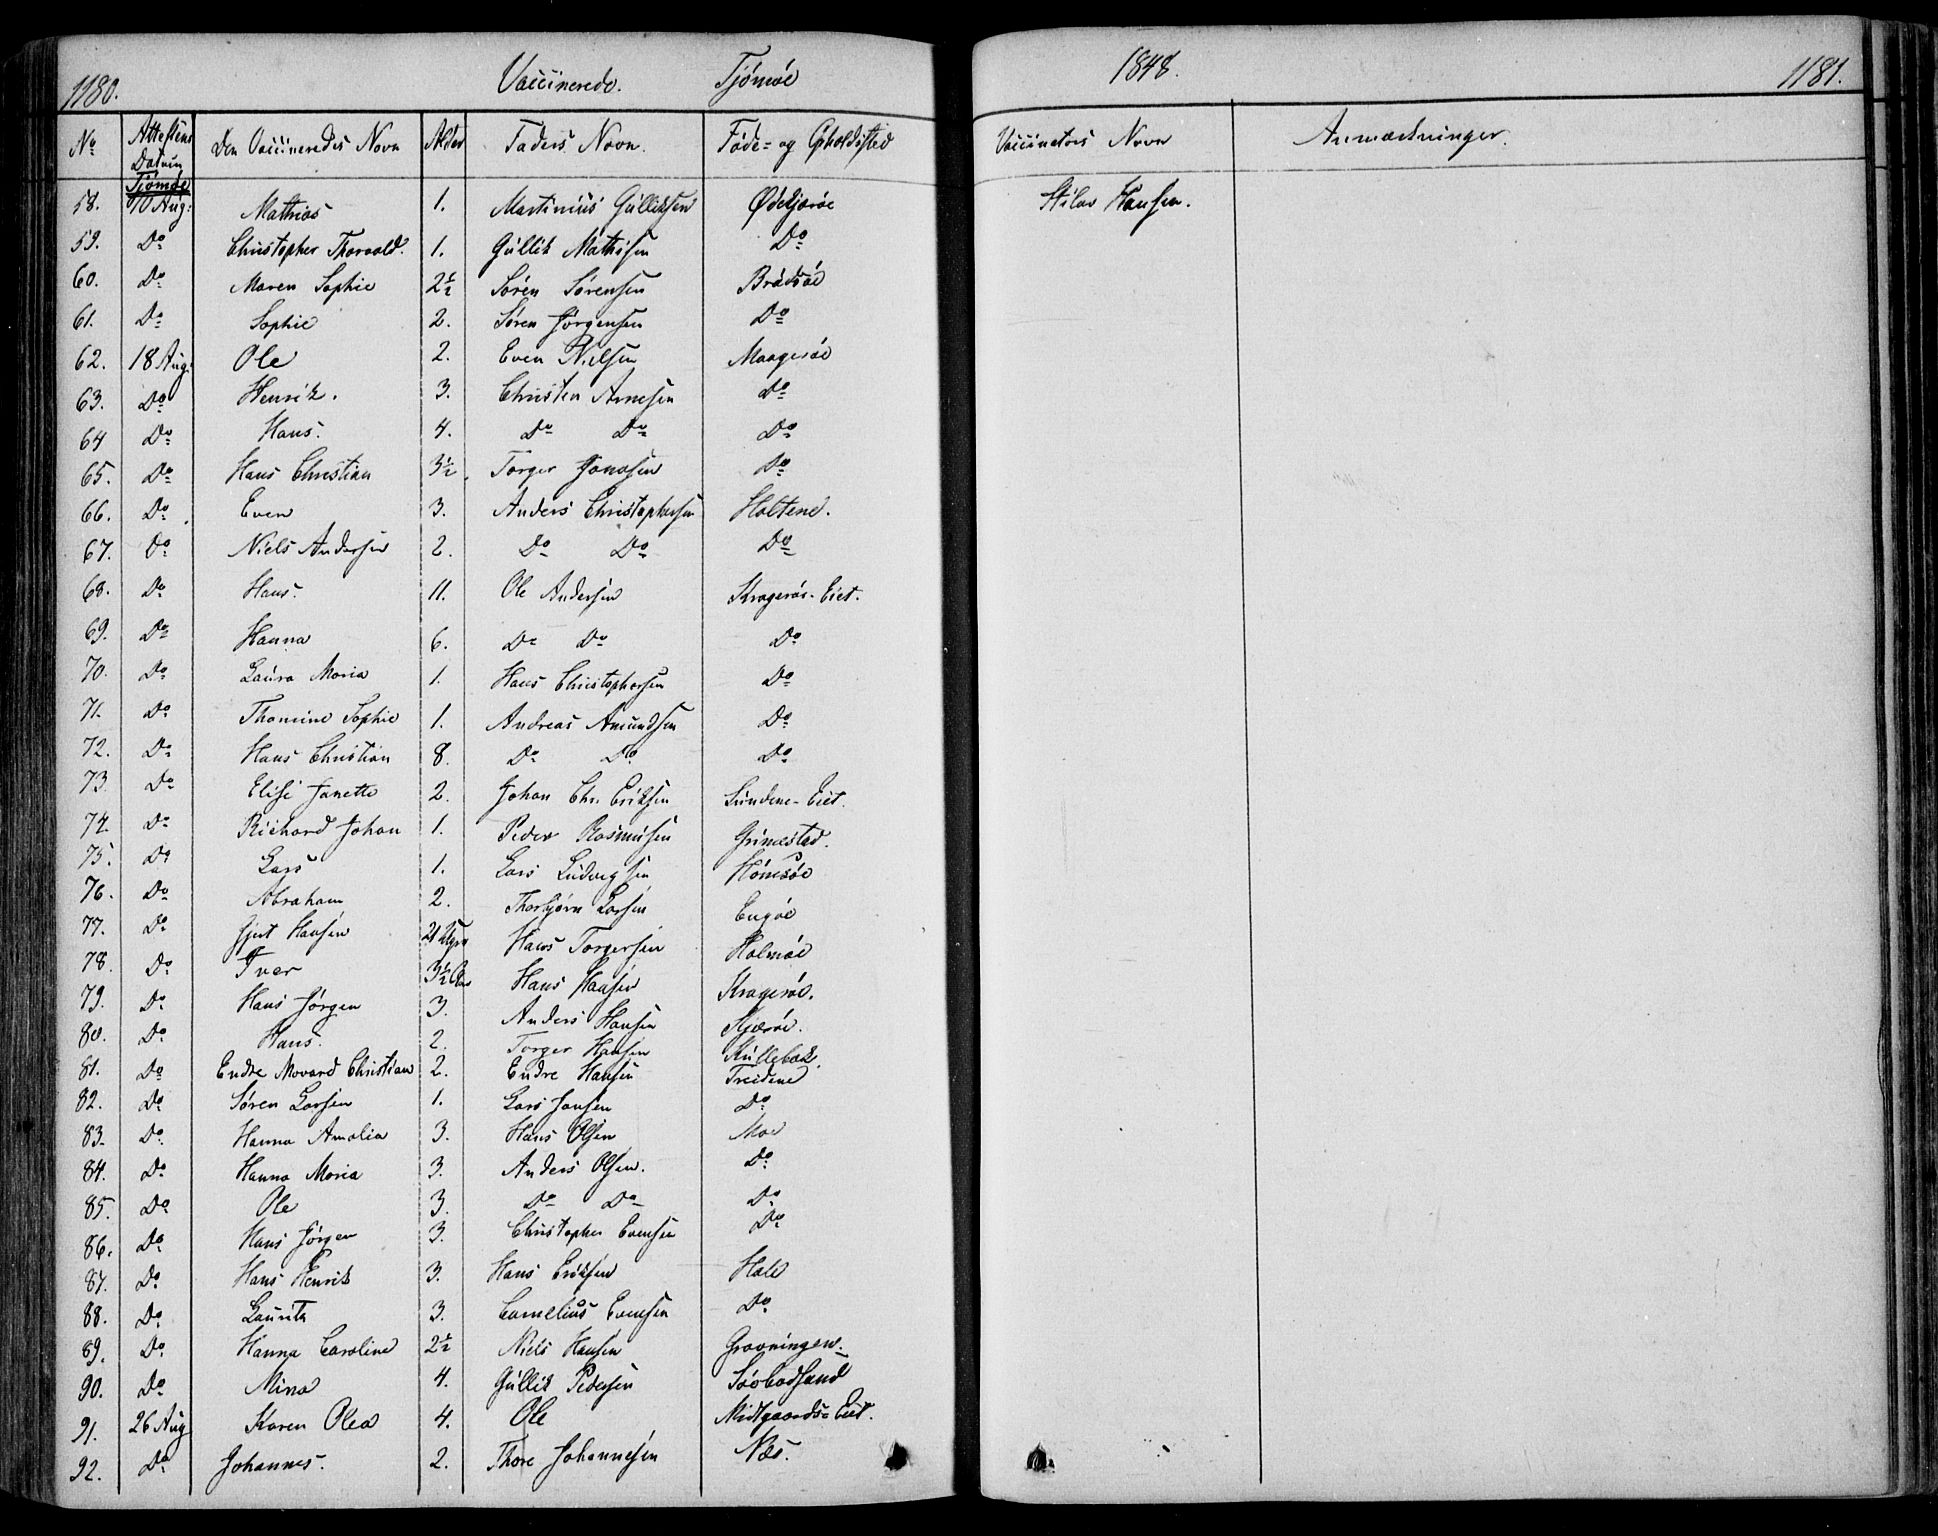 1180. Vaccinerede. Tjömöe 1848. 1181.
No Attestens Datum Den Vaccineredes Navn Alder Faders Navn. Føde- og Opholdssted Vaccinators Navn Anmærkninger.
Tjömöe
58. 10 Aug: Mathias 1. Martinius Gulliksen Ødekjæröe Hansen.
59. Do Christopher Thorvald. 1. Gullik Mathisen Do
60. Do Maren Sophie 2½ Sören Sörensen Brödsöe
61. Do Sophie 2. Sören Jörgensen Do
62. 18 Aug: Ole 2. Even Nielsen Maageröe
63. Do Henrik. 3. Christen Arnesen Do
64 Do Hans. 4. Do Do Do
65. Do Hans Christian 3½ Torger Jonasen Do
66. Do Even 3. Anders Christophersen Holtene.
67. Do Niels Andersen 2. Do Do Do
68. Do Hans. 11. Ole Andersen Krageröe-Eiet.
69. Do Hanna 6. Do Do Do
70. Do Laura Maria 1. Hans Christophersen Do
71. Do Thomine Sophie 1. Andreas Amundsen Do
72. Do Hans Christian 8. Do Do Do
73. Do Elise Janette 2. Johan Chr. Eriksen Sundene-Eiet.
74. Do Richard Johan 1. Peder Rasmusen Grimestad.
75. Do Lars 1. Lars Ludvigsen Hönesöe
76. Do Abraham 2. Thorbjörn Larsen Engöe
77. Do Gjert Hansen 21 Hans Torgersen Holmöe
78. Do Iver 3½ Hans Hansen Krageröe.
79. Do Hans Jörgen 3. Anders Hansen Kjæröe.
80. Do Hans. 2. Torger Hansen Kullebæk.
81. Do Endre Movard Christian 2. Endre Hansen Treidene
82. Do Sören Larsen 1. Lars Jansen Do
83. Do Hanna Amalia 3. Hans Olsen Moe
84. Do Hanna Maria 3. Anders Olsen. Do
85. Do Ole 3. Do Do Do
86. Do Hans Jörgen 3. Christopher Evensen Do
87. Do Hans Henrik 3. Hans Eriksen Hole
88. Do Laurits 3. Cornelius Evensen Do
89. Do Hanna Caroline 2½ Niels Hansen Gravningen.
90. Do Mina 4. Gullik Pedersen Söebodsand
91. 26 Aug Karen Olea 4. Ole Midtgaards-Eiet.
92. Do Johannes. 2. Thore Johannesen Næs.